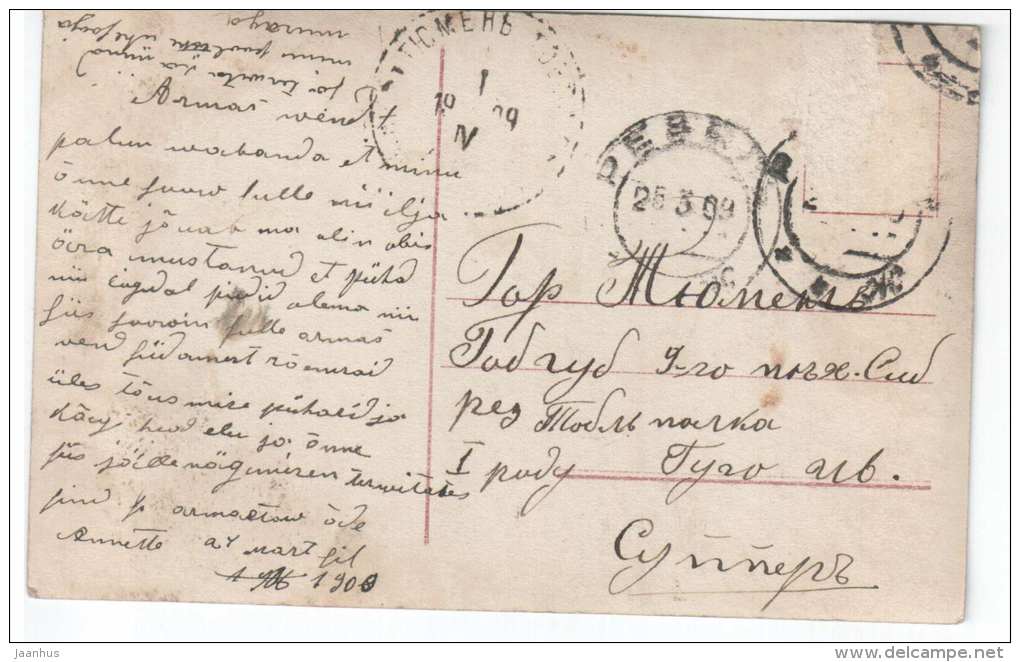 Armas wend
palun wabanda et minu
õnne soow sulle nii ilja
kätte jõuab ma olin abis
ära unustanud et püha
nii ligidal pidid olema nii
siis soowin sulle armas
wend südamest rõemsaid
üles tõusmise pühasid ja
käigi head elu ja õnne
siis jälle nägemisen terwitates
sind ja armastaw õde
Annette 24 mart gil
190
ТЮМЕНЬ ТОБ
1 IV 09
РЕВЕЛ
25 3 09
Гор Тюмень
Тоб губ 9-го пѣх. Сиб
рез Тобль полка
I роду Гуго ив.
Супперъ
jaanhus
www.delcampe.net